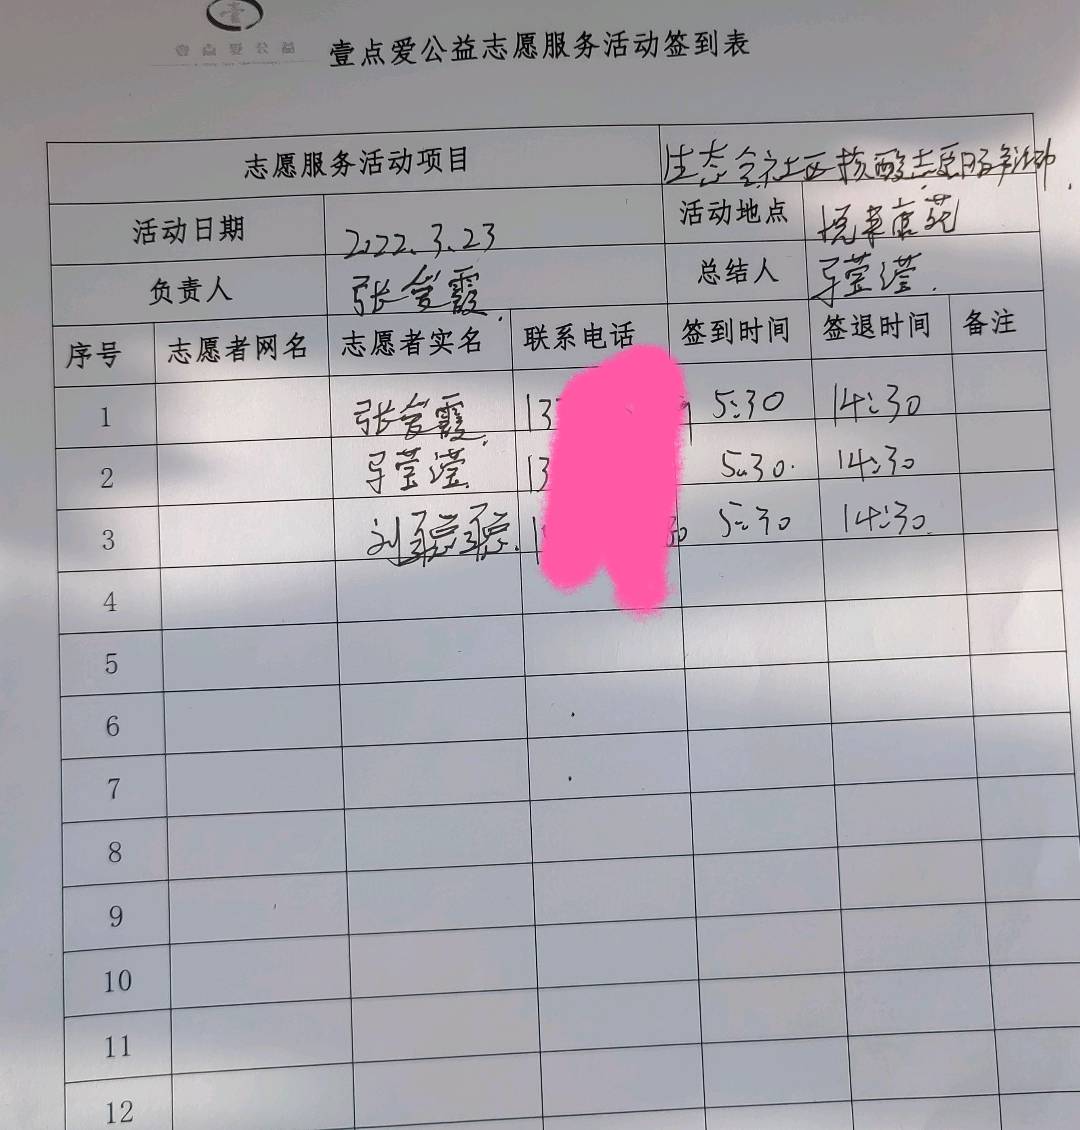 壹点爱公益
壹点爱公益志愿服务活动签到表
志愿服务活动项目 生态 社区核酸志愿服务活动
活动日期 2022.3.23 活动地点 悦来 苑
负责人 张 霞 总结人
序号 志愿者网名 志愿者实名 联系电话 签到时间 签退时间 备注
1 张 霞 13 5:30 14:30
2 13 5:30 14:30
3 刘 1 30 5:30 14:30
4
5
6
7
8
9
10
11
12